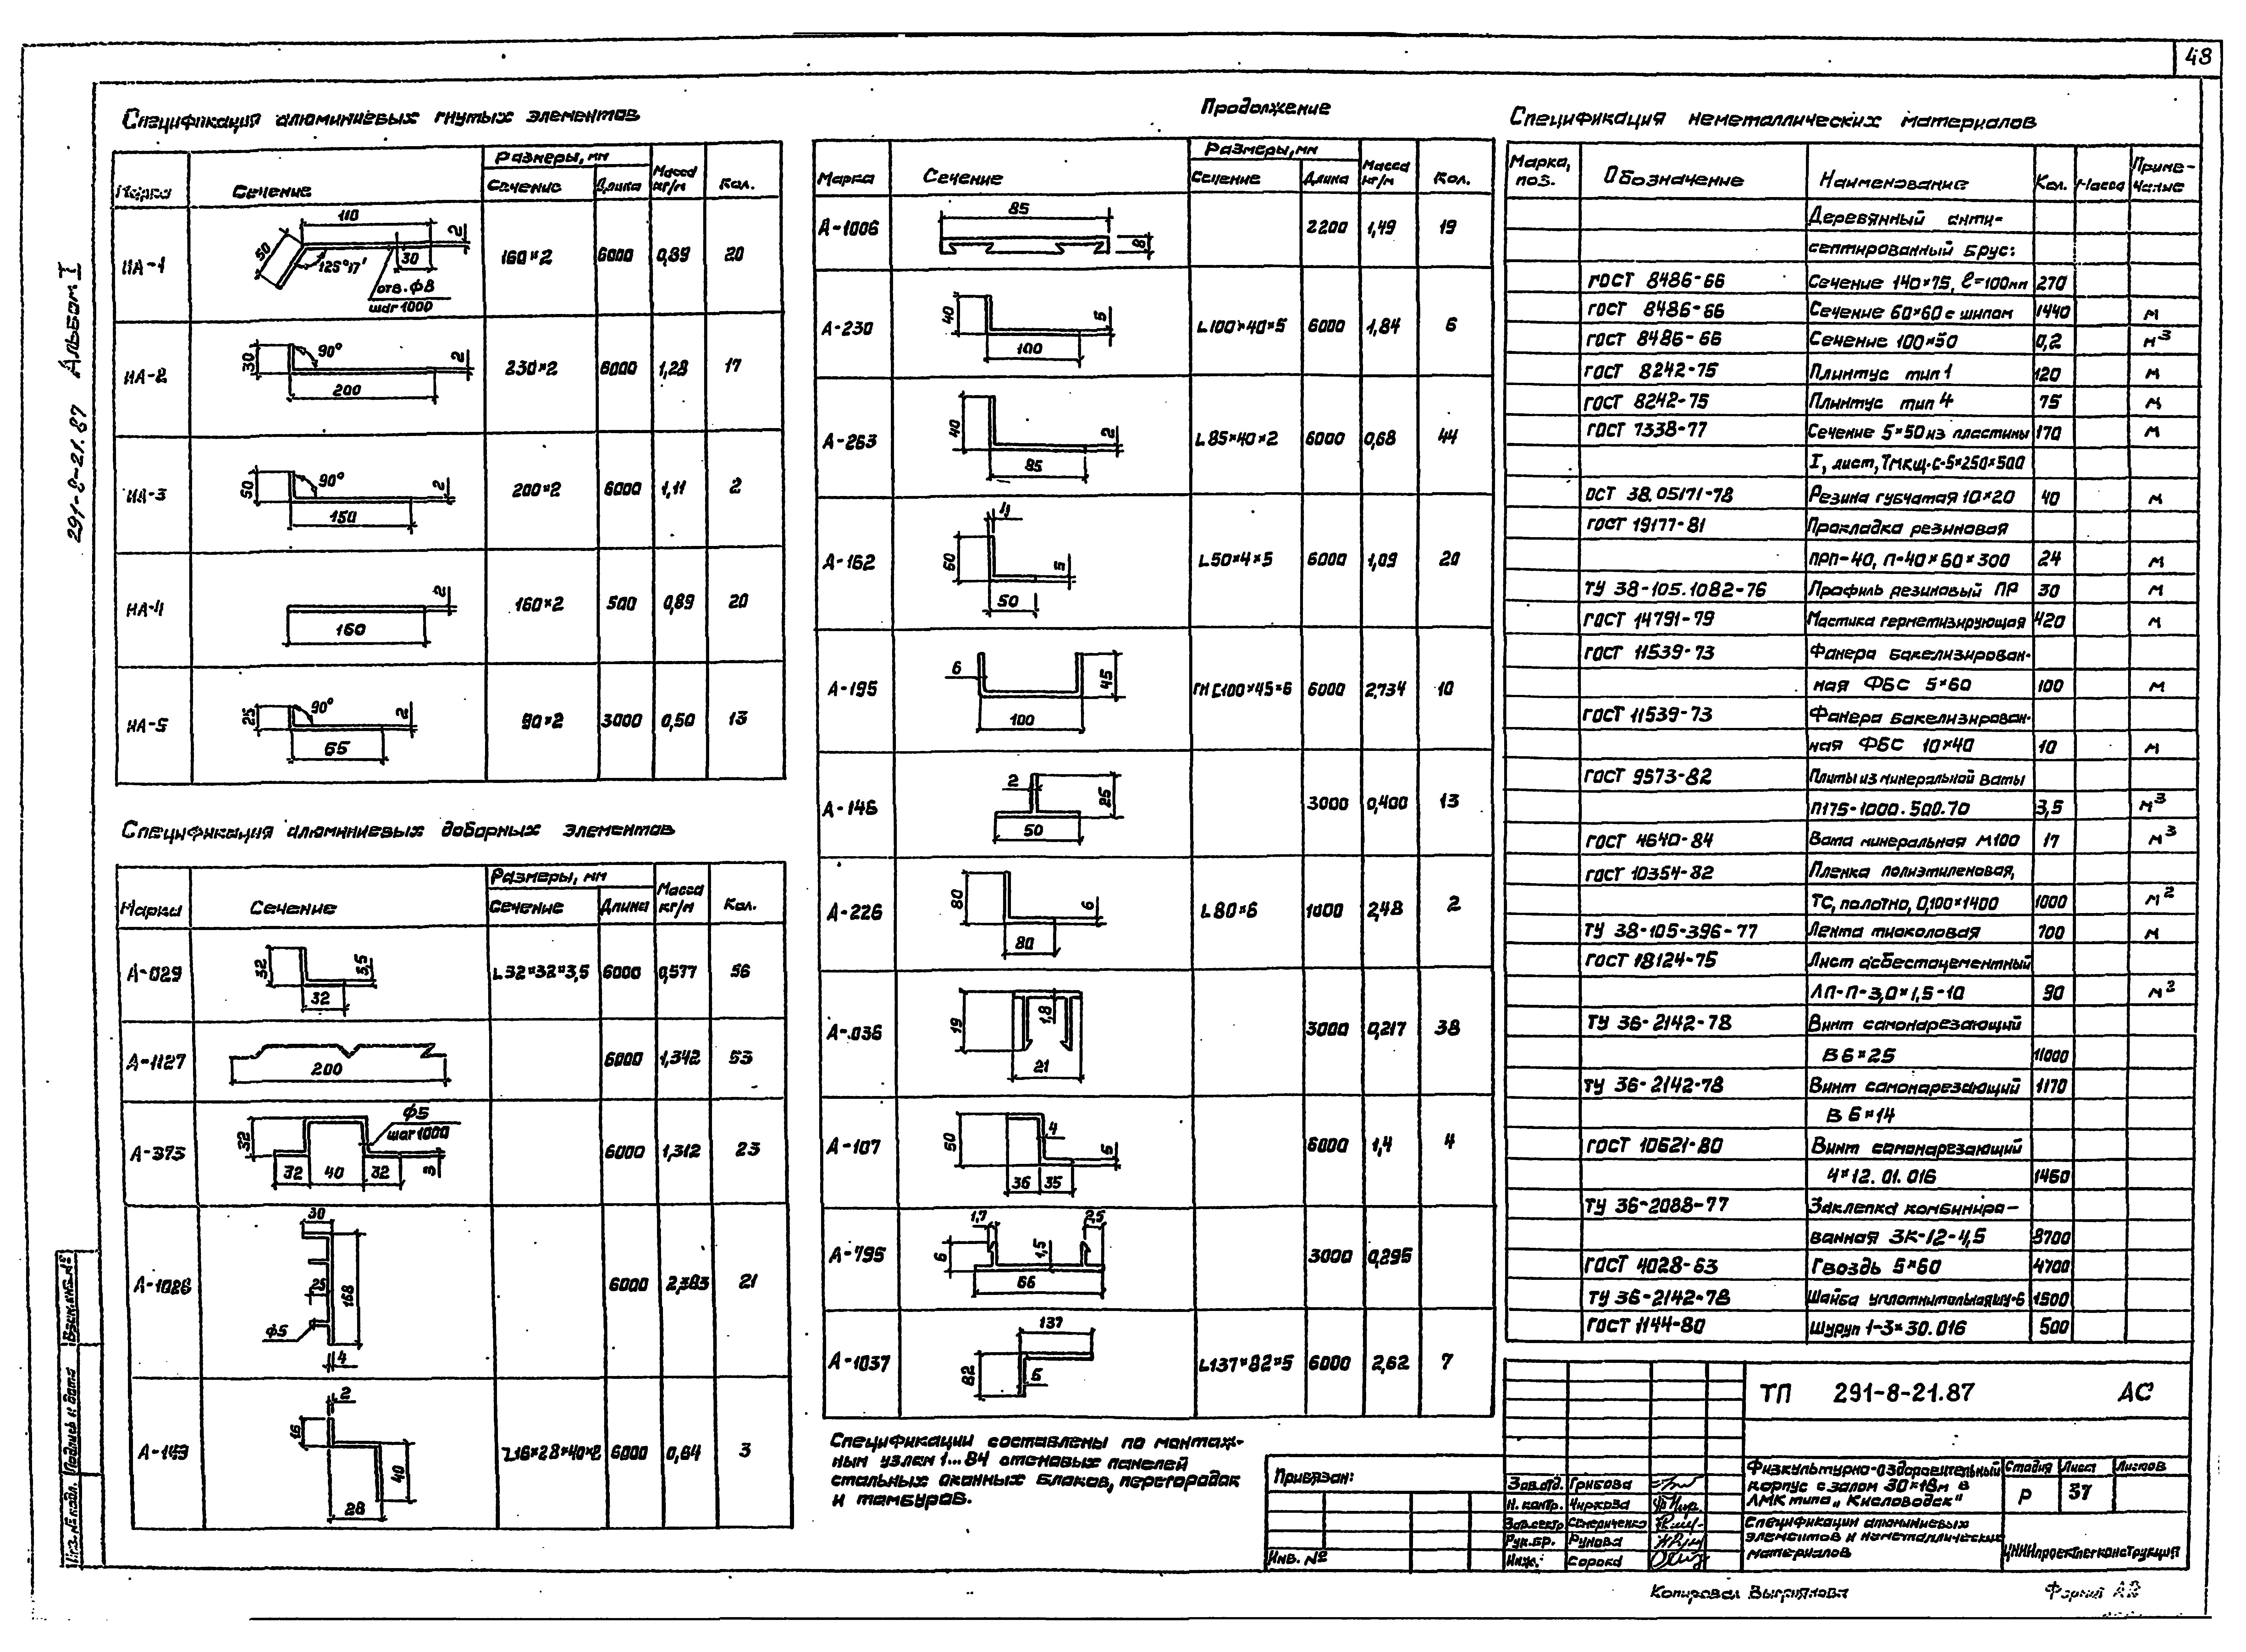 48
Альбом I
291-8-21.87
Спецификация алюминиевых гнутых элементов
Марка Сечение Размеры, мм Масса кг/м Кол.
Сечение Длина
НА-1 110 50 125°17' 30 2 отв. ф8 шаг 1000 160×2 6000 0,89 20
НА-2 30 90° 200 2 230×2 6000 1,28 17
НА-3 50 90° 150 2 200×2 6000 1,11 2
НА-4 160 2 160×2 500 0,89 20
НА-5 25 90° 65 2 90×2 3000 0,50 13
Спецификация алюминиевых доборных элементов
Марка Сечение Размеры, мм Масса кг/м Кол.
Сечение Длина
А-029 32 32 3,5 L32×32×3,5 6000 0,577 56
А-1127 200 6000 1,342 53
А-373 32 32 40 32 3 ф5 шаг 1000 6000 1,312 23
А-1026 30 25 168 ф5 4 6000 2,383 21
А-149 2 16 40 28 Z16×28×40×2 6000 0,64 3
Продолжение
Марка Сечение Размеры, мм Масса кг/м Кол.
Сечение Длина
А-1006 85 8 2200 1,49 19
А-230 40 100 5 L100×40×5 6000 1,84 6
А-263 40 85 2 L85×40×2 6000 0,68 44
А-162 4 60 50 5 L50×4×5 6000 1,09 20
А-195 6 45 100 ГН [100×45×6 6000 2,734 10
А-146 2 25 50 3000 0,400 13
А-226 80 80 6 L80×6 1000 2,48 2
А-036 19 1,8 21 3000 0,217 38
А-107 50 4 36 35 5 6000 1,4 4
А-795 1,7 2,5 6 1,5 66 3000 0,295
А-1037 137 82 5 L137×82×5 6000 2,62 7
Спецификации составлены по монтаж-
ным узлам 1...84 стеновых панелей
стальных оконных блоков, перегородок
и тамбуров.
Спецификация неметаллических материалов
Марка, поз. Обозначение Наименование Кол. Масса Примечание
Деревянный анти-
септированный брус:
ГОСТ 8486-66 Сечение 140×75, ℓ=100мм 270
ГОСТ 8486-66 Сечение 60×60 с шипом 1440 м
ГОСТ 8486-66 Сечение 100×50 0,2 м³
ГОСТ 8242-75 Плинтус тип 1 120 м
ГОСТ 8242-75 Плинтус тип 4 75 м
ГОСТ 7338-77 Сечение 5×50 из пластины 170 м
I, лист, ТМКЩ-С-5×250×500
ОСТ 38.05171-78 Резина губчатая 10×20 40 м
ГОСТ 19177-81 Прокладка резиновая
ПРП-40, П-40×60×300 24 м
ТУ 38-105.1082-76 Профиль резиновый ПР 30 м
ГОСТ 14791-79 Мастика герметизирующая 420 м
ГОСТ 11539-73 Фанера бакелизирован-
ная ФБС 5×60 100 м
ГОСТ 11539-73 Фанера бакелизирован-
ная ФБС 10×40 10 м
ГОСТ 9573-82 Плиты из минеральной ваты
П175-1000.500.70 3,5 м³
ГОСТ 4640-84 Вата минеральная М100 17 м³
ГОСТ 10354-82 Пленка полиэтиленовая,
ТС, полотно, 0,100×1400 1000 м²
ТУ 38-105-396-77 Лента тиоколовая 700 м
ГОСТ 18124-75 Лист асбестоцементный
ЛП-П-3,0×1,5-10 90 м²
ТУ 36-2142-78 Винт самонарезающий
В6×25 11000
ТУ 36-2142-78 Винт самонарезающий 1170
В6×14
ГОСТ 10621-80 Винт самонарезающий
4×12.01.016 1460
ТУ 36-2088-77 Заклепка комбиниро-
ванная ЗК-12-4,5 8700
ГОСТ 4028-63 Гвоздь 5×60 4700
ТУ 36-2142-78 Шайба уплотнительная ШУ-6 1500
ГОСТ 1144-80 Шуруп 1-3×30.016 500
ТП 291-8-21.87 АС
Физкультурно-оздоровительный
корпус с залом 30×18м в
ЛМК типа „Кисловодск"
Стадия Лист Листов
Р 37
Спецификации алюминиевых
элементов и неметаллических
материалов
ЦНИИпроектлегконструкция
Привязан:
Инв. №
Зав.отд. Грибова
Н. контр. Чиркова
Зав.сектр Семериченко
Рук.бр. Рунова
Инж. Сорока
Взам.инв.№
Подпись и дата
Инв.№ подл.
Копировал
Формат А2